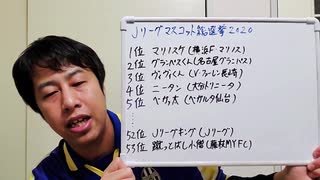 Jリーグマスコット総選挙2020
1位 マリノスケ(横浜F・マリノス)
2位 グランパスくん(名古屋グランパス)
3位 ヴィヴィくん(V・ファーレン長崎)
4位 ニータン(大分トリニータ)
5位 ベガッ太(ベガルタ仙台)
⋮
52位 Jリーグキング(Jリーグ)
53位 蹴っとばし小僧(藤枝MYFC)